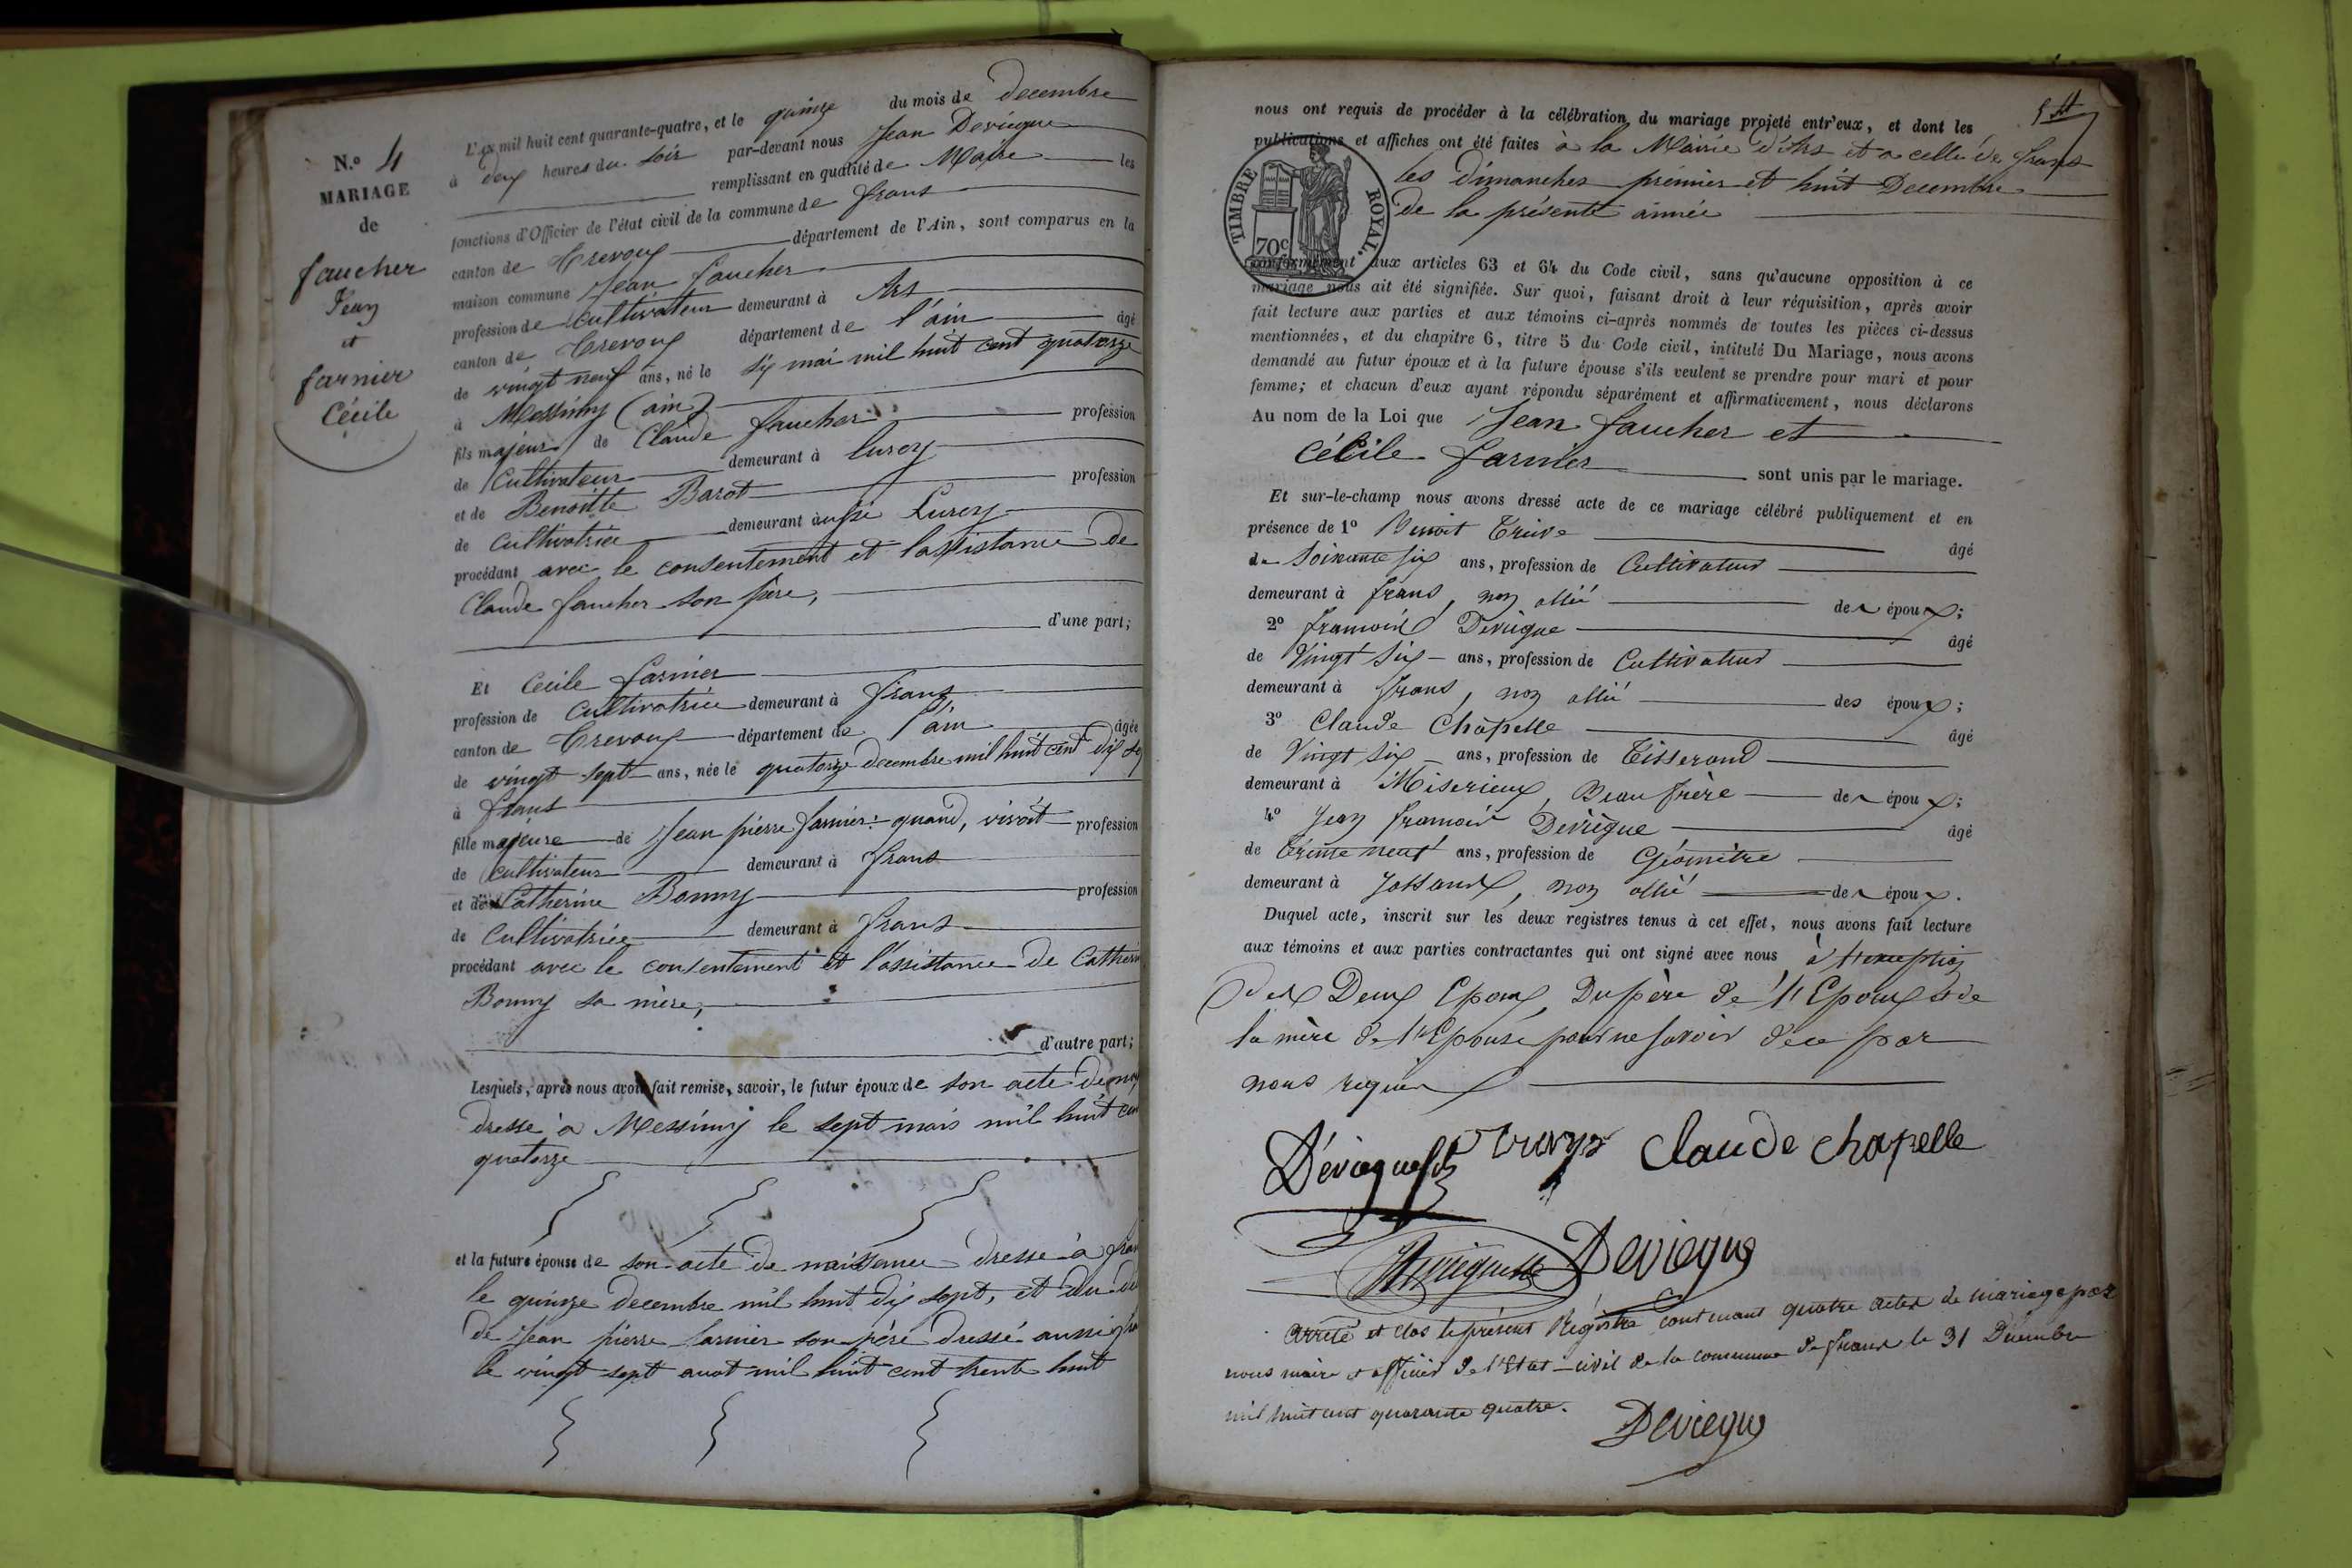 N.o 4
MARIAGE
de
faucher
Jean
et
farnier
Cécile
L'an mil huit cent quarante-quatre, et le quinze du mois de decembre
à deux heures du soir par-devant nous Jean Deviegue
remplissant en qualité de Maire les
fonctions d'Officier de l'état civil de la commune de frans
canton de Trevoux département de l'Ain, sont comparus en la
maison commune Jean faucher
profession de cultivateur demeurant à Ars
canton de Trevoux département de l'ain âgé
de vingt neuf ans, né le six mai mil huit cent quatorze
à Messimy (ain)
fils majeur de Claude faucher profession
de Cultivateur demeurant à Lurcy
et de Benoitte Barot profession
de Cultivatrice demeurant à aussi Lurcy
procédant avec le consentement et l'assistance de
Claude faucher son père,
d'une part;
Et Cécile farnier
profession de Cultivatrice demeurant à frans
canton de Trevoux département de l'ain âgée
de vingt sept ans, née le quatorze decembre mil huit cent dix
à frans
fille majeure de Jean pierre farnier quand, vivoit profession
de cultivateur demeurant à frans
et de Catherine Bonny profession
de Cultivatrice demeurant à frans
procédant avec le consentement et l'assistance de Catherin
Bonny sa mère,
d'autre part;
Lesquels, après nous avoir fait remise, savoir, le futur époux de son acte de
dressé à Messimy le sept mais mil huit cen
quatorze
et la future épouse de son acte de naissance dressé à fran
le quinze decembre mil huit dix sept, et du
de Jean pierre farnier son père dressé aussi
le vingt sept aout mil huit cent trente huit
nous ont requis de procéder à la célébration du mariage projeté entr'eux, et dont les
publications et affiches ont été faites à la Mairie d'Ars et a celle de frans
les dimanches premier et huit Decembre
de la présente année
TIMBRE ROYAL.
70c
conformément aux articles 63 et 64 du Code civil, sans qu'aucune opposition à ce
mariage nous ait été signifiée. Sur quoi, faisant droit à leur réquisition, après avoir
fait lecture aux parties et aux témoins ci-après nommés de toutes les pièces ci-dessus
mentionnées, et du chapitre 6, titre 5 du Code civil, intitulé Du Mariage, nous avons
demandé au futur époux et à la future épouse s'ils veulent se prendre pour mari et pour
femme; et chacun d'eux ayant répondu séparément et affirmativement, nous déclarons
Au nom de la Loi que Jean faucher et
Cécile farnier sont unis par le mariage.
Et sur-le-champ nous avons dressé acte de ce mariage célébré publiquement et en
présence de 1o Benoit Trive âgé
de Soixante six ans, profession de Cultivateur
demeurant à frans, non allié des époux;
2o françois Deviegue âgé
de Vingt six ans, profession de Cultivateur
demeurant à frans, non allié des époux;
3o Claude Chapelle âgé
de Vingt six ans, profession de Tisserand
demeurant à Miserieux, Beau frère des époux;
4o Jean françois Deviegue âgé
de Trente neuf ans, profession de Géomètre
demeurant à Jassans, non allié des époux.
Duquel acte, inscrit sur les deux registres tenus à cet effet, nous avons fait lecture
aux témoins et aux parties contractantes qui ont signé avec nous à l'exception
des Deux Epoux, Du père de l'Epoux et de
la mère de l'Epouse pour ne savoir de ce par
nous requis
Déviegue fils Claude chapelle
Deviegue
Arrêté et clos le présent Régistre contenant quatre actes de mariage par
nous maire et officier de l'Etat-civil de la commune de frans le 31 Decembre
mil huit cent quarante quatre.
Deviegue